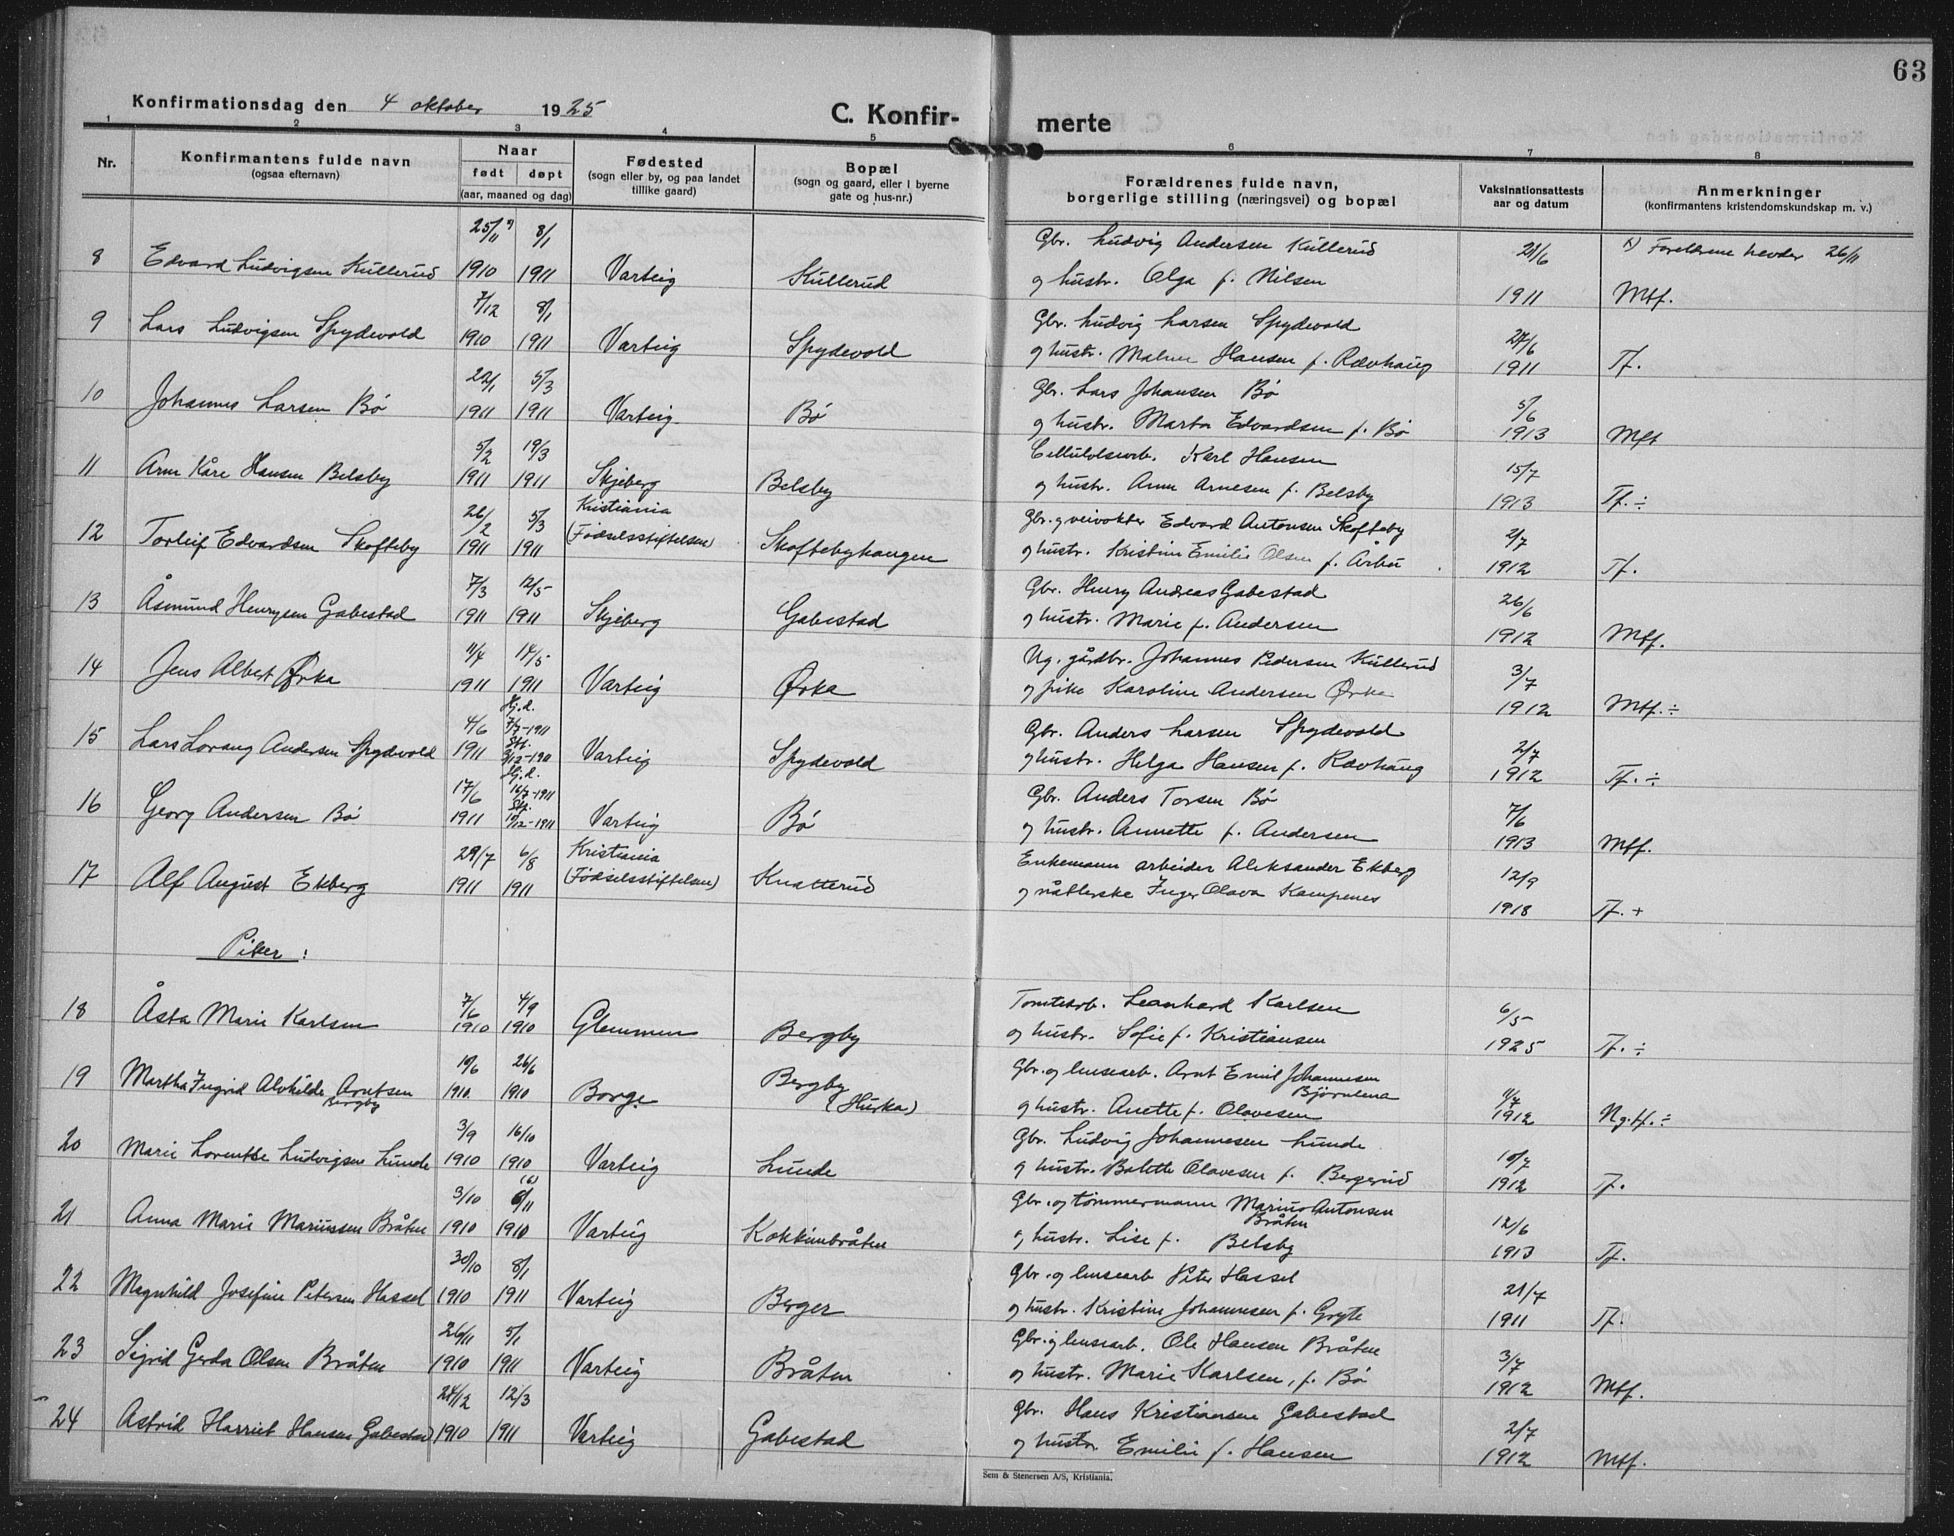 63
Konfirmationsdag den 4 oktober 1925
C. Konfir- merte
1 2 3 4 5 6 7 8
Nr.
Konfirmantens fulde navn
(ogsaa efternavn)
Naar
født døpt
(aar, maaned og dag)
Fødested
(sogn eller by, og paa landet
tillike gaard)
Bopæl
(sogn og gaard, eller i byerne
gate og hus-nr.)
Forældrenes fulde navn,
borgerlige stilling (næringsvei) og bopæl
Vaksinationsattests
aar og datum
Anmerkninger
(konfirmantens kristendomskundskap m. v.)
25/11 *) 8/1 Gbr. Ludvig Andersen Kullerud 21/6 *) Foreldrene hevder 26/11
8 Edvard Ludvigsen Kullerud 1910 1911 Varteig Kullerud og hustr. Olga f. Nilsen 1911 Mtf.
7/12 8/1 Gbr. Ludvig Larsen Spydevold 27/6
9 Lars Ludvigsen Spydevold 1910 1911 Varteig Spydevold og hustr. Malene Hansen f. Rævhaug 1911 Tf.
22/1 5/3 Gbr. Lars Johansen Bø 5/6
10 Johannes Larsen Bø 1911 1911 Varteig Bø og hustr. Marta Edvardsen f. Bø 1913 Mtf
5/2 19/3 Cellulosearb. Karl Hansen 15/7
11 Arne Kåre Hansen Belsby 1911 1911 Skjeberg Belsby og hustr. Anna Arnesen f. Belsby 1913 Tf. ÷
26/2 5/3 Kristiania Gbr. og veivokter Edvard Antonsen Skofteby 2/7
12 Torleif Edvardsen Skofteby 1911 1911 (Fødselsstiftelsen) Skoftebyhaugen og hustr. Kristine Emilie Olsen f. Årbu 1912 Tf.
7/3 12/5 Gbr. Henry Andreas Gabestad 26/6
13 Åsmund Henrysen Gabestad 1911 1911 Skjeberg Gabestad og hustr. Marie f. Andersen 1912 Mtf.
11/4 14/5 Ug. gårdbr. Johannes Pedersen Kullerud 3/7
14 Jens Albert Ørka 1911 1911 Varteig Ørka og pike Karoline Andersen Ørka 1912 Mtf. ÷
4/6 Hj.d. 7/7-1911 Gbr. Anders Larsen Spydevold 2/7
15 Lars Lorang Andersen Spydevold 1911 Stf. 3/12-1911 Varteig Spydevold og hustr. Helga Hansen f. Rævhaug 1912 Tf. ÷
17/6 Hj.d. 16/7-1911 Gbr. Anders Torsen Bø 7/6
16 Georg Andersen Bø 1911 Stf. 10/12-1911 Varteig Bø og hustr. Annette f. Andersen 1913 Mtf.
29/7 6/8 Kristiania Enkemann arbeider Aleksander Ekberg 12/9
17 Alf August Ekberg 1911 1911 (Fødselsstiftelsen) Knatterud og nåtlerske Inger Olava Kampenes 1918 Tf. +
Piker:
7/6 4/9 Tomtearb. Leonhard Karlsen 6/5
18 Åsta Marie Karlsen 1910 1910 Glemmen Bergby og hustr. Sofie f. Kristiansen 1925 Tf. ÷
10/6 26/6 Gbr. og lensearb. Arnt Emil Johannesen Bjørnlena
19 Martha Ingrid Alvhilde Arntsen Bergby 1910 1910 Borge Bergby (Hurka) og hustr. Anette f. Olavesen 1912 Ng. tf. ÷
3/9 16/10 Gbr. Ludvig Johannesen Lunde 10/7
20 Marie Lorentse Ludvigsen Lunde 1910 1910 Varteig Lunde og hustr. Bolette Olavesen f. Bergerud 1912 Tf.
3/10 6/11 (6) Gbr. og tømmermann Marius Antonsen Bråten 12/6
21 Anna Marie Mariussen Bråten 1910 1910 Varteig Kokkinbråten og hustr. Lise f. Belsby 1913 Tf.
30/10 8/1 Gbr. og lensearb Peter Hassel 21/7
22 Magnhild Josefine Petersen Hassel 1910 1911 Varteig Berger og hustr. Kristine Johannesen f. Gryte 1911 Tf.
26/11 5/1 Gbr. og lensearb. Ole Hansen Bråten 3/7
23 Sigrid Gerda Olsen Bråten 1910 1911 Varteig Bråten og hustr. Marie Karlsen, f. Bø 1912 Mtf.
24/12 12/3 Gbr. Hans Kristiansen Gabestad 2/7
24 Astrid Harriet Hansen Gabestad 1910 1911 Varteig Gabestad og hustr Emilie f. Hansen 1912 Mtf.
Sem & Stenersen A/S, Kristiania.